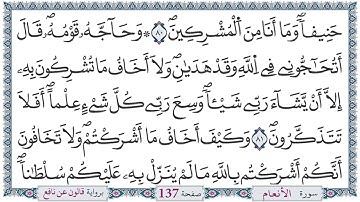 حَنِيفاٗ وَمَا أَنَا مِنَ اَلْمُشْرِكِينَۖ ٨٠ ۞ وَحَآجَّهُۥ قَوْمُهُۥۖ قَالَ
أَتُحَٰٓجُّونِے فِے اِ۬للَّهِ وَقَدْ هَدَيٰنِۖ وَلَآ أَخَافُ مَا تُشْرِكُونَ بِهِۦٓ
إِلَّآ أَنْ يَّشَآءَ رَبِّے شَيْـٔاٗۖ وَسِعَ رَبِّے كُلَّ شَےْءٍ عِلْماًۖ أَفَلَا
تَتَذَكَّرُونَۖ ٨١ وَكَيْفَ أَخَافُ مَآ أَشْرَكْتُمْ وَلَا تَخَافُونَ
أَنَّكُمْ أَشْرَكْتُم بِاللَّهِ مَا لَمْ يُنَزِّلْ بِهِۦ عَلَيْكُمْ سُلْطَٰناٗۖ
سورة الأنعام صفحة 137 برواية قالون عن نافع